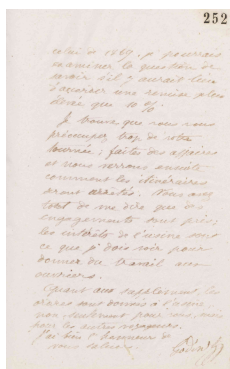 252
celui de 1869, je pourrais
examiner la question de
savoir s'il y aurait lieu
d'accorder une remise plus
élevée que 10 %.
Je trouve que vous vous
préoccupez trop de votre
tournée; faites des affaires
et nous verrons ensuite
comment les itinéraires
seront arrêtés. Vous avez
tort de me dire que des
engagements sont pris,
les intérêts de l'usine sont
ce que je dois voir pour
donner du travail aux
ouvriers.
Quant aux suppléments, les
ordres sont donnés à l'usine,
non seulement pour vous, mais
pour les autres voyageurs.
J'ai bien l'honneur de
vous saluer
Godin